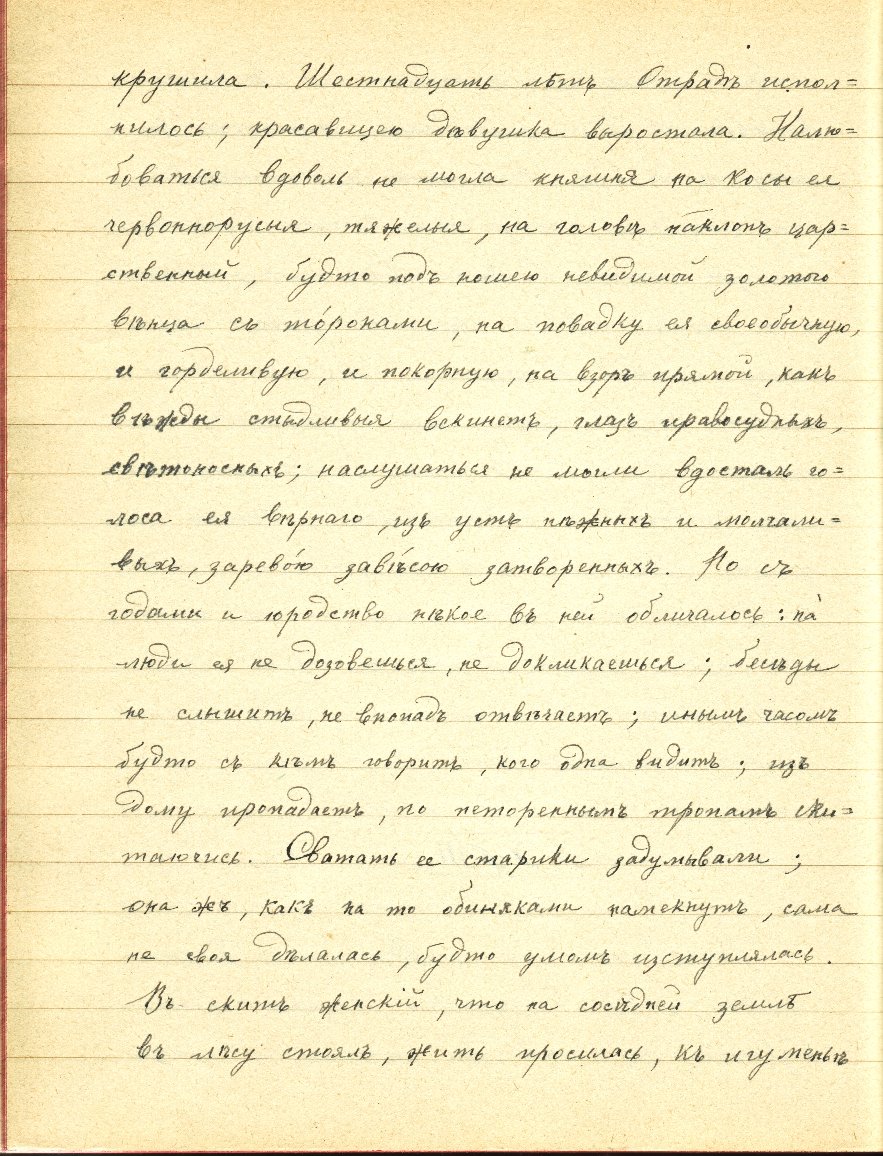 крушила. Шестнадцать лѣтъ Отрадѣ испол=
нилось; красавицею дѣвушка выростала. Налю=
боваться вдоволь не могла княгиня на косы ея
червоннорусыя, тяжелыя, на головѣ наклонъ цар=
ственный, будто подъ ношею невидимой золотого
вѣнца съ то́роками, на повадку ея своеобычную,
и горделивую, и покорную, на взоръ прямой, какъ
вѣжды стыдливыя вскинетъ, глазъ правосудныхъ,
свѣтоносныхъ; наслушаться не могли вдосталь го=
лоса ея вѣрнаго, изъ устъ нѣжныхъ и молчали=
выхъ, зарево́ю завѣ́сою затворенныхъ. Но съ
годами и юродство нѣкое въ ней обличалось: на́
люди ея не дозовешься, не докликаешься; бесѣды
не слышитъ, не впопадъ отвѣчаетъ; инымъ часомъ
будто съ кѣмъ говоритъ, кого одна видитъ; изъ
дому пропадаетъ, по нетореннымъ тропамъ ски=
таючись. Сватать ее старики задумывали;
она жъ, какъ на то обиняками намекнутъ, сама
не своя дѣлалась, будто умомъ изступлялась.
Въ скитъ женскій, что на сосѣдней землѣ
въ лѣсу стоялъ, жить просилась, къ игуменьѣ